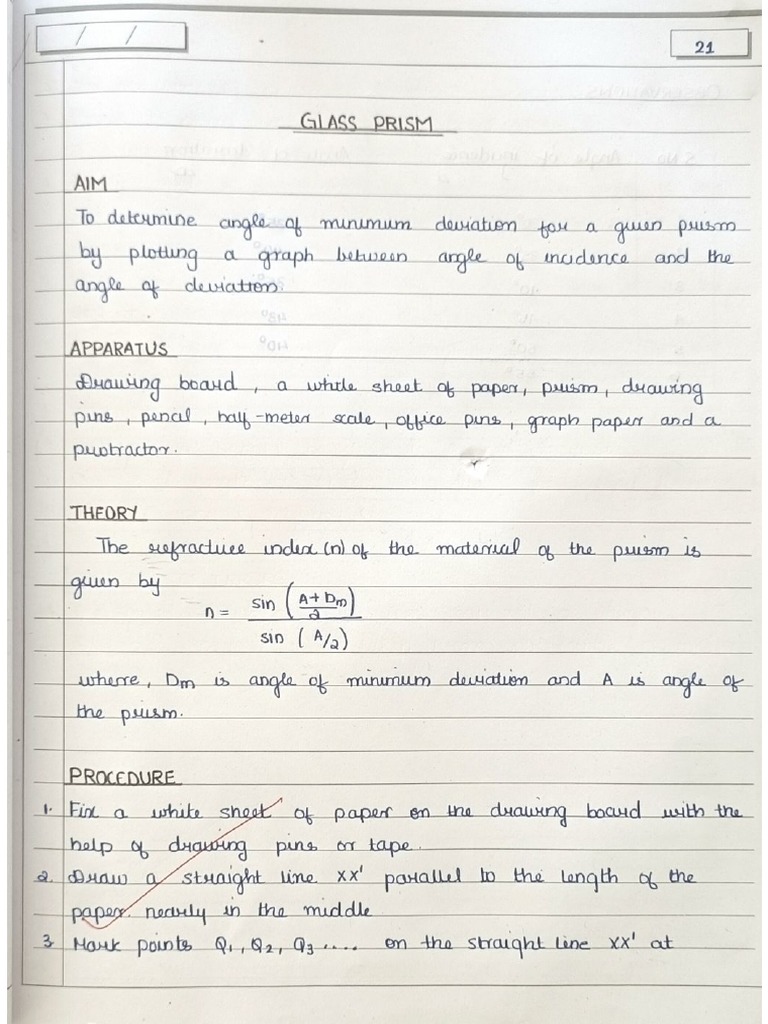 / /
21
GLASS PRISM
AIM
To determine angle of minimum deviation for a given prism
by plotting a graph between angle of incidence and the
angle of deviation.
APPARATUS
Drawing board, a white sheet of paper, prism, drawing
pins, pencil, half-meter scale, office pins, graph paper and a
protractor.
THEORY
The refractive index (n) of the material of the prism is
given by
n = sin (A+Dm/2) / sin (A/2)
where, Dm is angle of minimum deviation and A is angle of
the prism.
PROCEDURE
1. Fix a white sheet of paper on the drawing board with the
help of drawing pins or tape.
2. Draw a straight line XX' parallel to the length of the
paper nearly in the middle
3. Mark points Q1, Q2, Q3 .... on the straight line XX' at